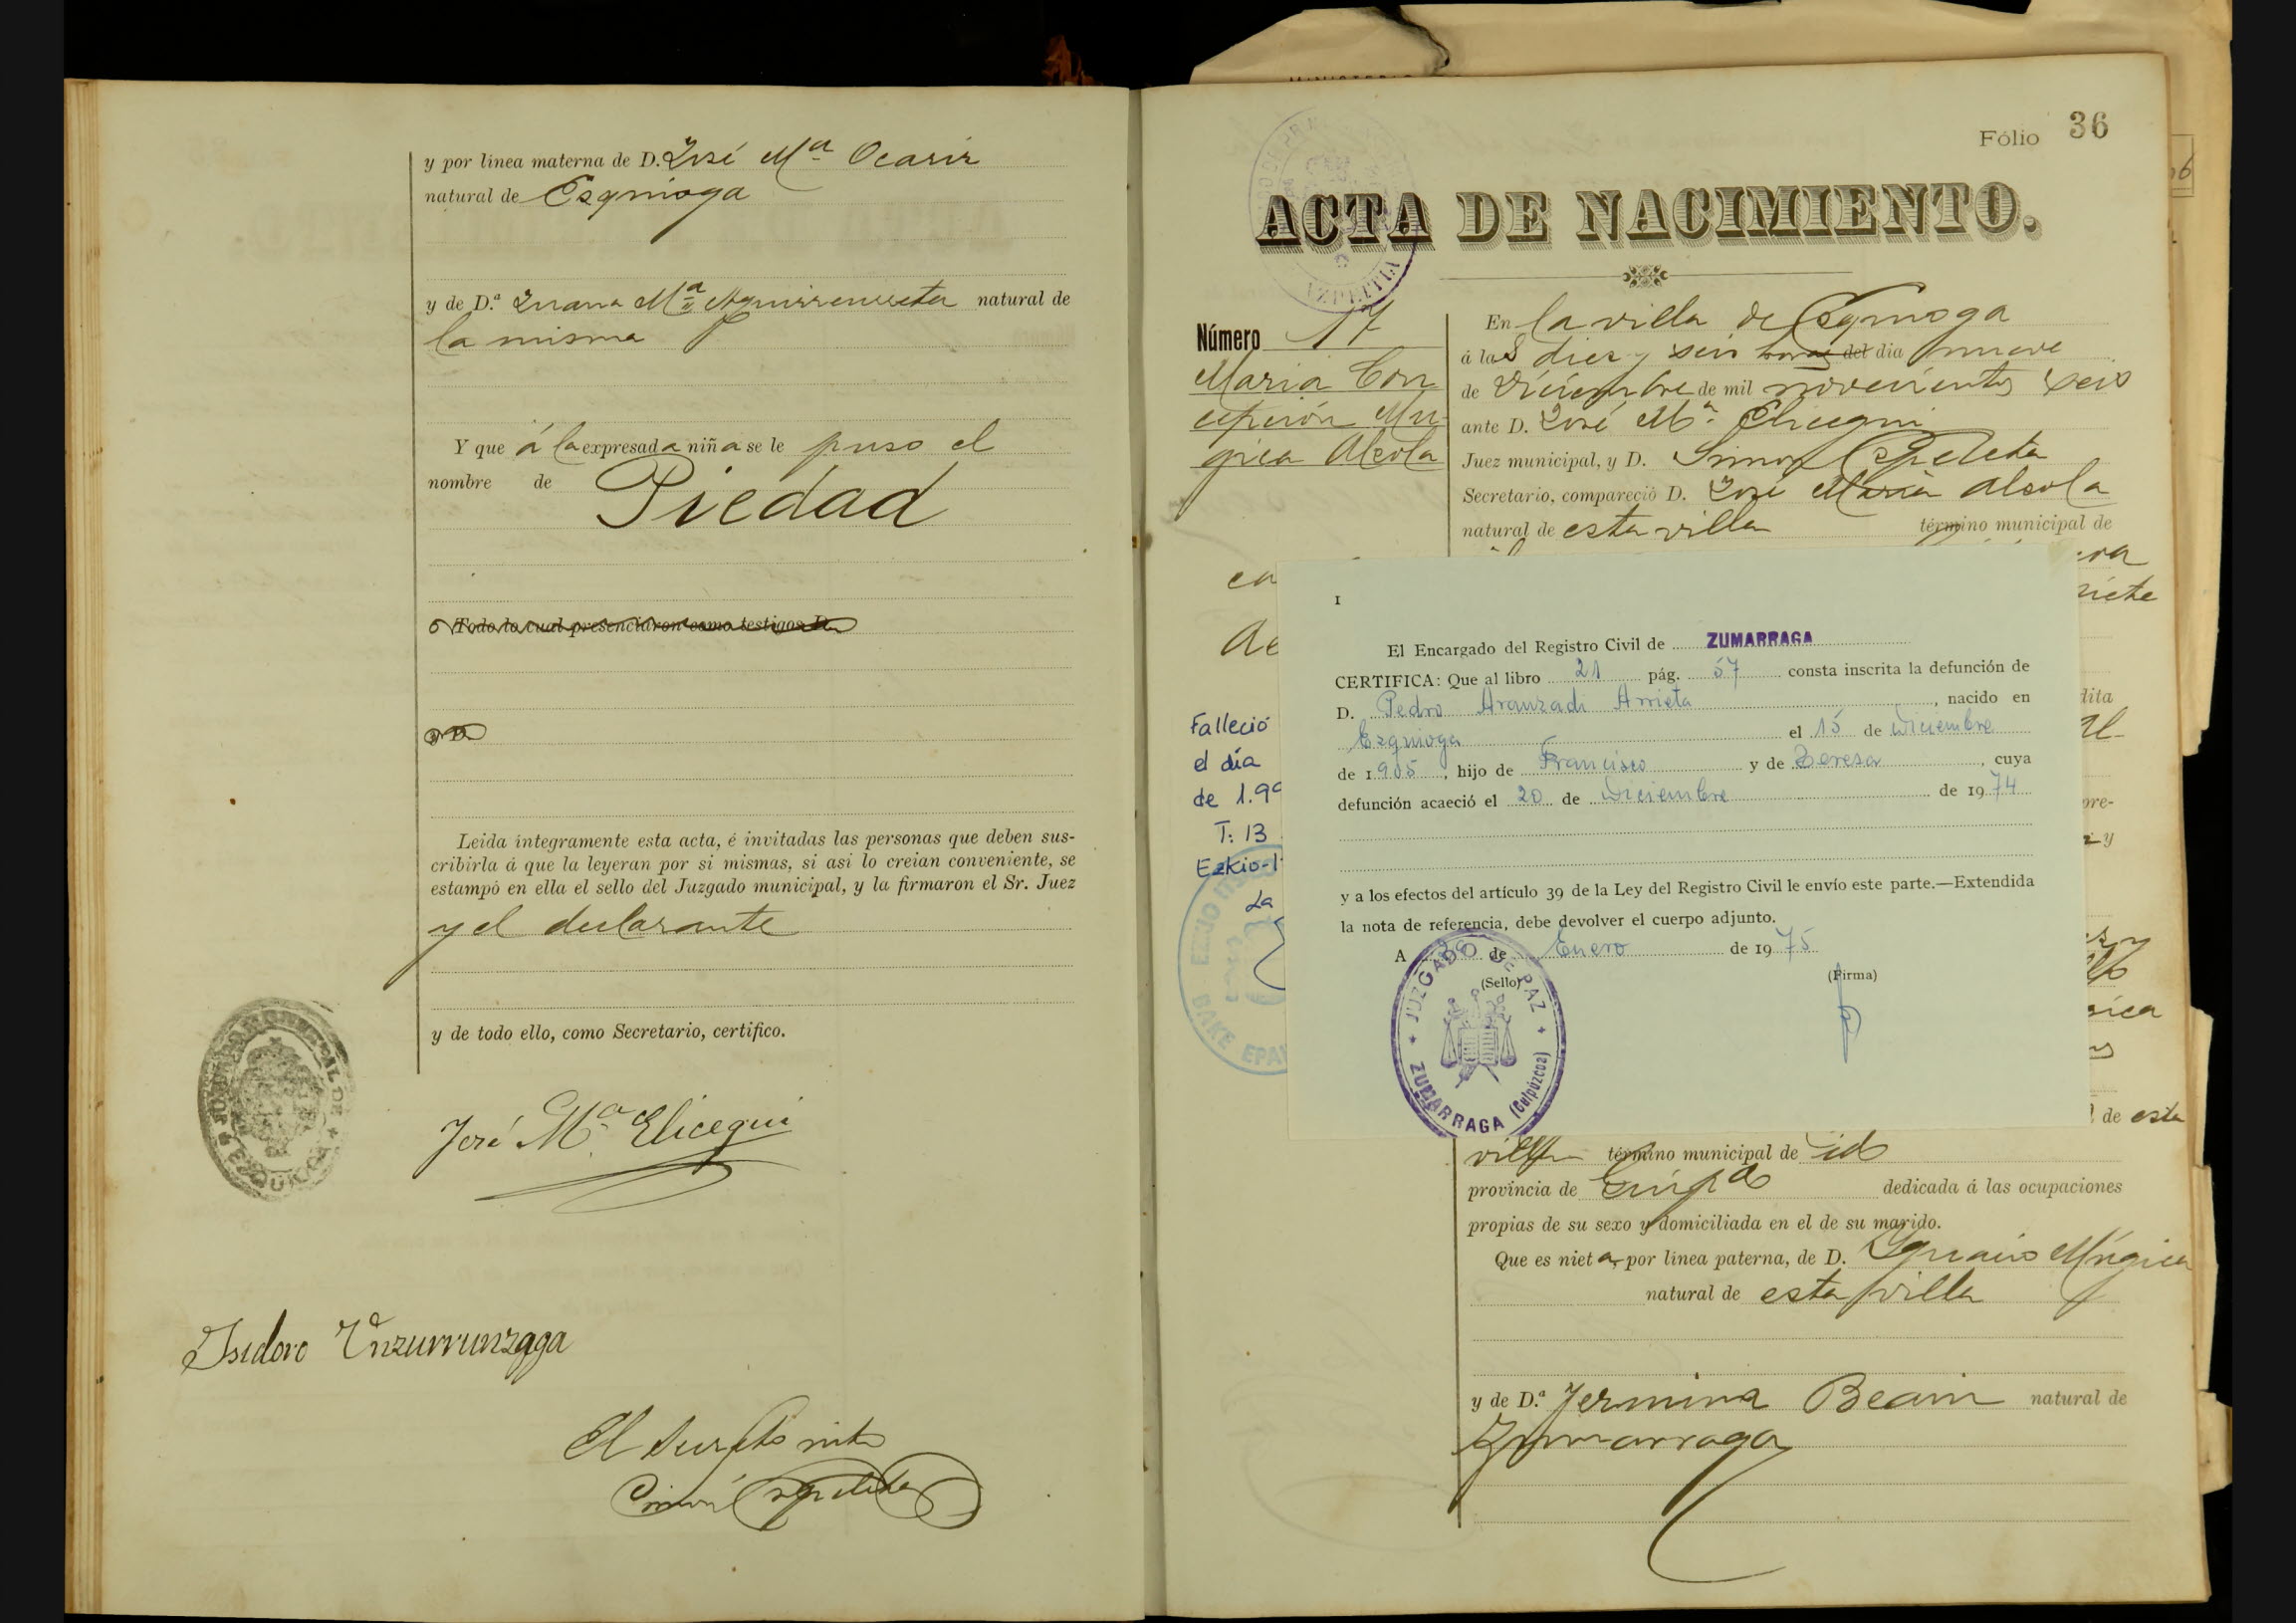 y por linea materna de D. José Mª Ocariz
natural de Esquioga
y de D.ª Juana Mª Aguirreurreta natural de
la misma
Y que á la expresada niña se le puso el
nombre de Piedad
Todo lo cual presenciaron como testigos D.
y D.
Leida íntegramente esta acta, é invitadas las personas que deben sus-
cribirla á que la leyeran por si mismas, si asi lo creian conveniente, se
estampó en ella el sello del Juzgado municipal, y la firmaron el Sr. Juez
y el declarante
y de todo ello, como Secretario, certifico.
José Mª Elicegui
Isidoro Unzurrunzaga
El
Simon Ezpeleta
Fólio 36
ACTA DE NACIMIENTO.
AZPEITIA
Número 17
Maria Con-
cepción Mu-
gica Alcola
En la villa de Esquioga
á las diez y seis horas del dia nueve
de Diciembre de mil novecientos seis
ante D. José Mª Elicegui
Juez municipal, y D. Simon Ezpeleta
Secretario, compareció D. José Maria Alcola
natural de esta villa término municipal de
Falleció
el día
de 1.99
T: 13
Ezkio-I
La
BAKE EPAI
I
El Encargado del Registro Civil de ZUMARRAGA
CERTIFICA: Que al libro 21 pág. 57 consta inscrita la defunción de
D. Pedro Aranzadi Arrieta, nacido en
Ezquioga el 15 de Diciembre
de 1.905, hijo de Francisco y de Teresa, cuya
defunción acaeció el 20 de Diciembre de 1974
y a los efectos del artículo 39 de la Ley del Registro Civil le envío este parte.—Extendida
la nota de referencia, debe devolver el cuerpo adjunto.
A de Enero de 1975
(Sello) (Firma)
JUZGADO DE PAZ
ZUMARRAGA (Guipúzcoa)
de esta
villa término municipal de id
provincia de Guipª dedicada á las ocupaciones
propias de su sexo y domiciliada en el de su marido.
Que es nieta, por linea paterna, de D. Ignacio Múgica
natural de esta villa
y de D.ª Fermina Beain natural de
Zumarraga